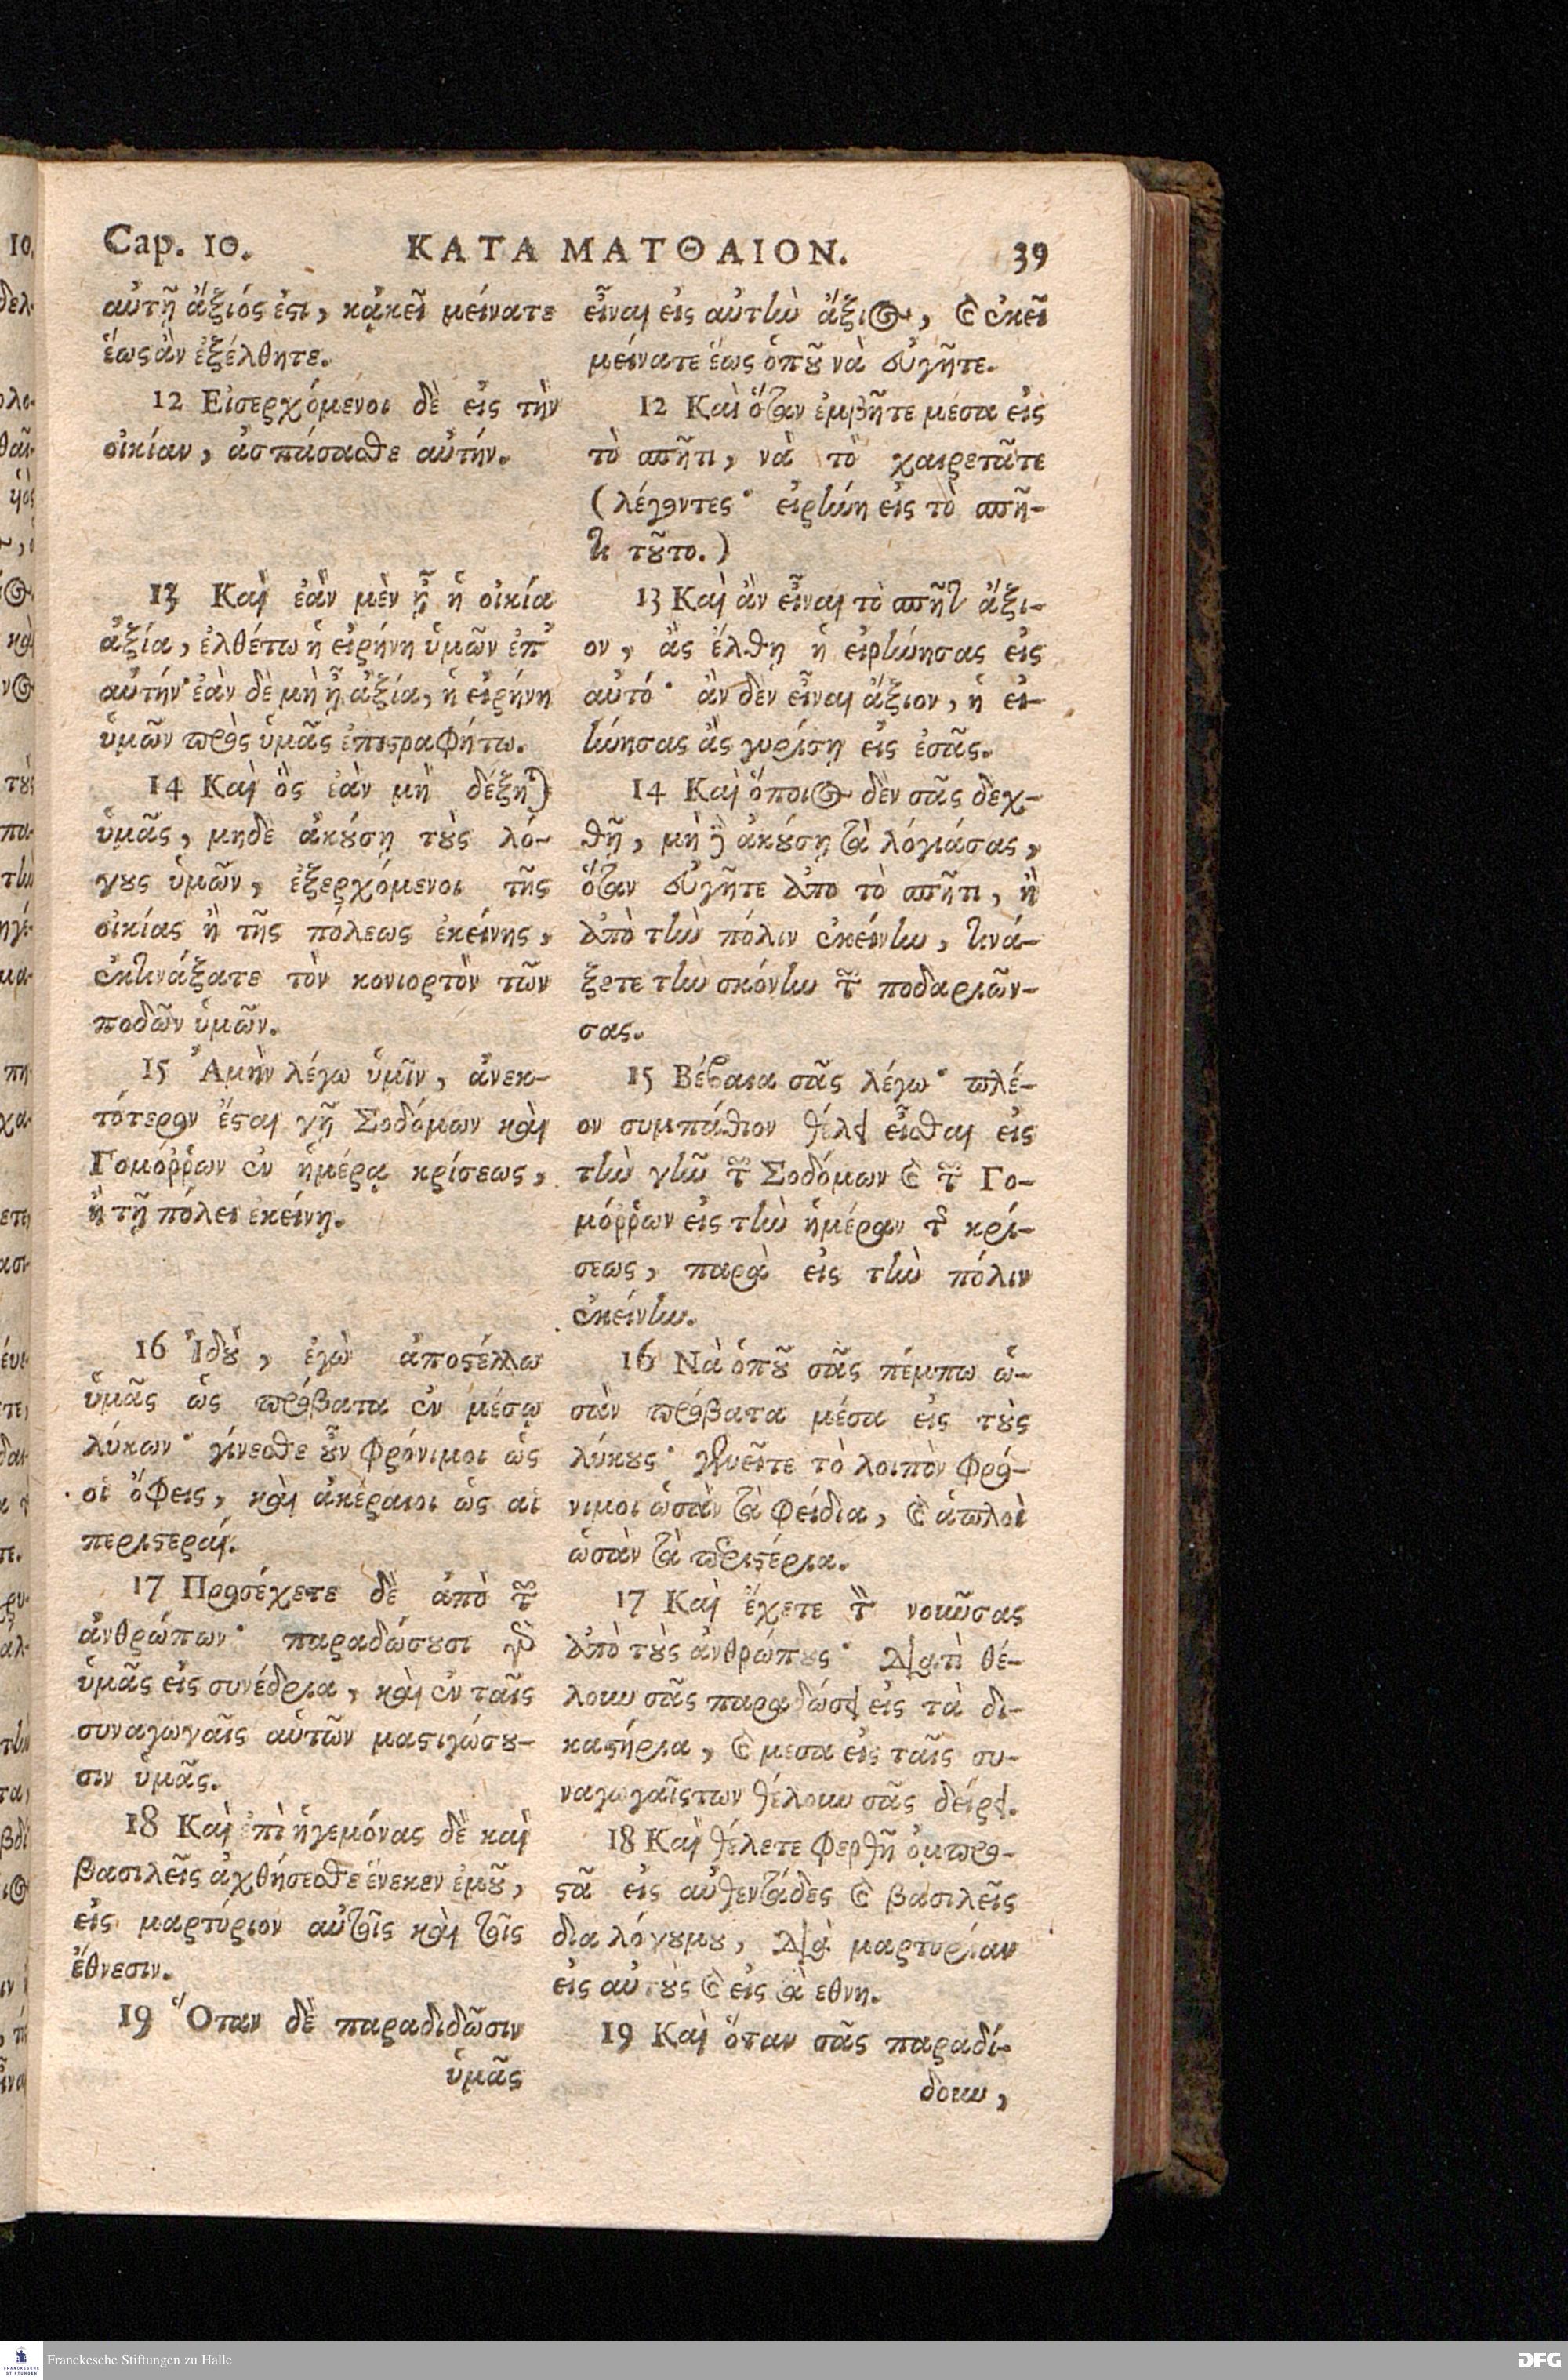 Cap. 10. ΚΑΤΑ ΜΑΤΘΑΙΟΝ. 39
αὐτῇ ἄξιός ἐστι, κᾀκεῖ μείνατε
ἕως ἂν ἐξέλθητε.
12 Εἰσερχόμενοι δὲ εἰς τὴν
οἰκίαν, ἀσπάσασθε αὐτήν.
13 Καὶ ἐὰν μὲν ᾖ ἡ οἰκία
ἀξία, ἐλθέτω ἡ εἰρήνη ὑμῶν ἐπ'
αὐτήν· ἐὰν δὲ μὴ ᾖ ἀξία, ἡ εἰρήνη
ὑμῶν πρὸς ὑμᾶς ἐπιστραφήτω.
14 Καὶ ὃς ἐὰν μὴ δέξηται
ὑμᾶς, μηδε ἀκούσῃ τοὺς λό-
γους ὑμῶν, ἐξερχόμενοι τῆς
οἰκίας ἢ τῆς πόλεως ἐκείνης,
ἐκτινάξατε τὸν κονιορτὸν τῶν
ποδῶν ὑμῶν.
15 Ἀμὴν λέγω ὑμῖν, ἀνεκ-
τότερον ἔσται γῇ Σοδόμων καὶ
Γομόῤῥων ἐν ἡμέρᾳ κρίσεως,
ἢ τῇ πόλει ἐκείνῃ.
16 Ἰδοὺ, ἐγὼ ἀποστέλλω
ὑμᾶς ὡς πρόβατα ἐν μέσῳ
λύκων· γίνεσθε οὖν φρόνιμοι ὡς
οἱ ὄφεις, καὶ ἀκέραιοι ὡς αἱ
περιστεραί.
17 Προσέχετε δὲ ἀπὸ τῶν
ἀνθρώπων· παραδώσουσι γὰρ
ὑμᾶς εἰς συνέδρια, καὶ ἐν ταῖς
συναγωγαῖς αὐτῶν μαστιγώσου-
σιν ὑμᾶς.
18 Καὶ ἐπὶ ἡγεμόνας δὲ καὶ
βασιλεῖς ἀχθήσεσθε ἕνεκεν ἐμοῦ,
εἰς μαρτύριον αὐτοῖς καὶ τοῖς
ἔθνεσιν.
19 Ὅταν δὲ παραδιδῶσιν
ὑμᾶς
εἶναι εἰς αὐτὴν ἄξιος, καὶ ἐκεῖ
μείνατε ἕως ὁποῦ νὰ εὐγῆτε.
12 Καὶ ὅταν ἐμβῆτε μέσα εἰς
τὸ σπῆτι, νὰ τὸ χαιρετᾶτε
(λέγοντες· εἰρήνη εἰς τὸ σπῆ-
τι τοῦτο.)
13 Καὶ ἂν εἶναι τὸ σπῆτι ἄξι-
ον, ἂς ἔλθῃ ἡ εἰρήνησας εἰς
αὐτό· ἂν δὲν εἶναι ἄξιον, ἡ εἰ-
ρήνησας ἂς γυρίσῃ εἰς ἐσᾶς.
14 Καὶ ὅποιος δὲν σᾶς δεχ-
θῇ, μὴ δὲ ἀκούσῃ τὰ λόγιάσας,
ὅταν εὐγῆτε ἀπο τὸ σπῆτι, ἢ
ἀπὸ τὴν πόλιν ἐκείνην, τινά-
ξετε τὴν σκόνην τῶν ποδαριῶν-
σας.
15 Βέβαια σᾶς λέγω· πλέ-
ον συμπάθιον θέλει εἶσθαι εἰς
τὴν γῆν τῶν Σοδόμων καὶ τῶν Γο-
μόῤῥων εἰς τὴν ἡμέραν τῆς κρί-
σεως, παρὰ εἰς τὴν πόλιν
ἐκείνην.
16 Νὰ ὁποῦ σᾶς πέμπω ὡ-
σὰν πρόβατα μέσα εἰς τοὺς
λύκους· γενεῖτε τὸ λοιπὸν φρό-
νιμοι ὡσὰν τὰ φείδια, καὶ ἁπλοὶ
ὡσὰν τὰ περιστέρια.
17 Καὶ ἔχετε τὸν νοῦνσας
ἀπὸ τοὺς ἀνθρώπους· διατὶ θέ-
λουν σᾶς παραδώσει εἰς τὰ δι-
καστήρια, καὶ μεσα εἰς ταῖς συ-
ναγωγαῖςτων θέλουν σᾶς δείρει.
18 Καὶ θέλετε φερθῆ ὀμπρο-
στᾶ εἰς αὐθεντάδες καὶ βασιλεῖς
δια λόγουμου, διὰ μαρτυρίαν
εἰς αὐτοὺς καὶ εἰς τὰ εθνη.
19 Καὶ ὅταν σᾶς παραδί-
δουν,
10.
Franckesche Stiftungen zu Halle
DFG